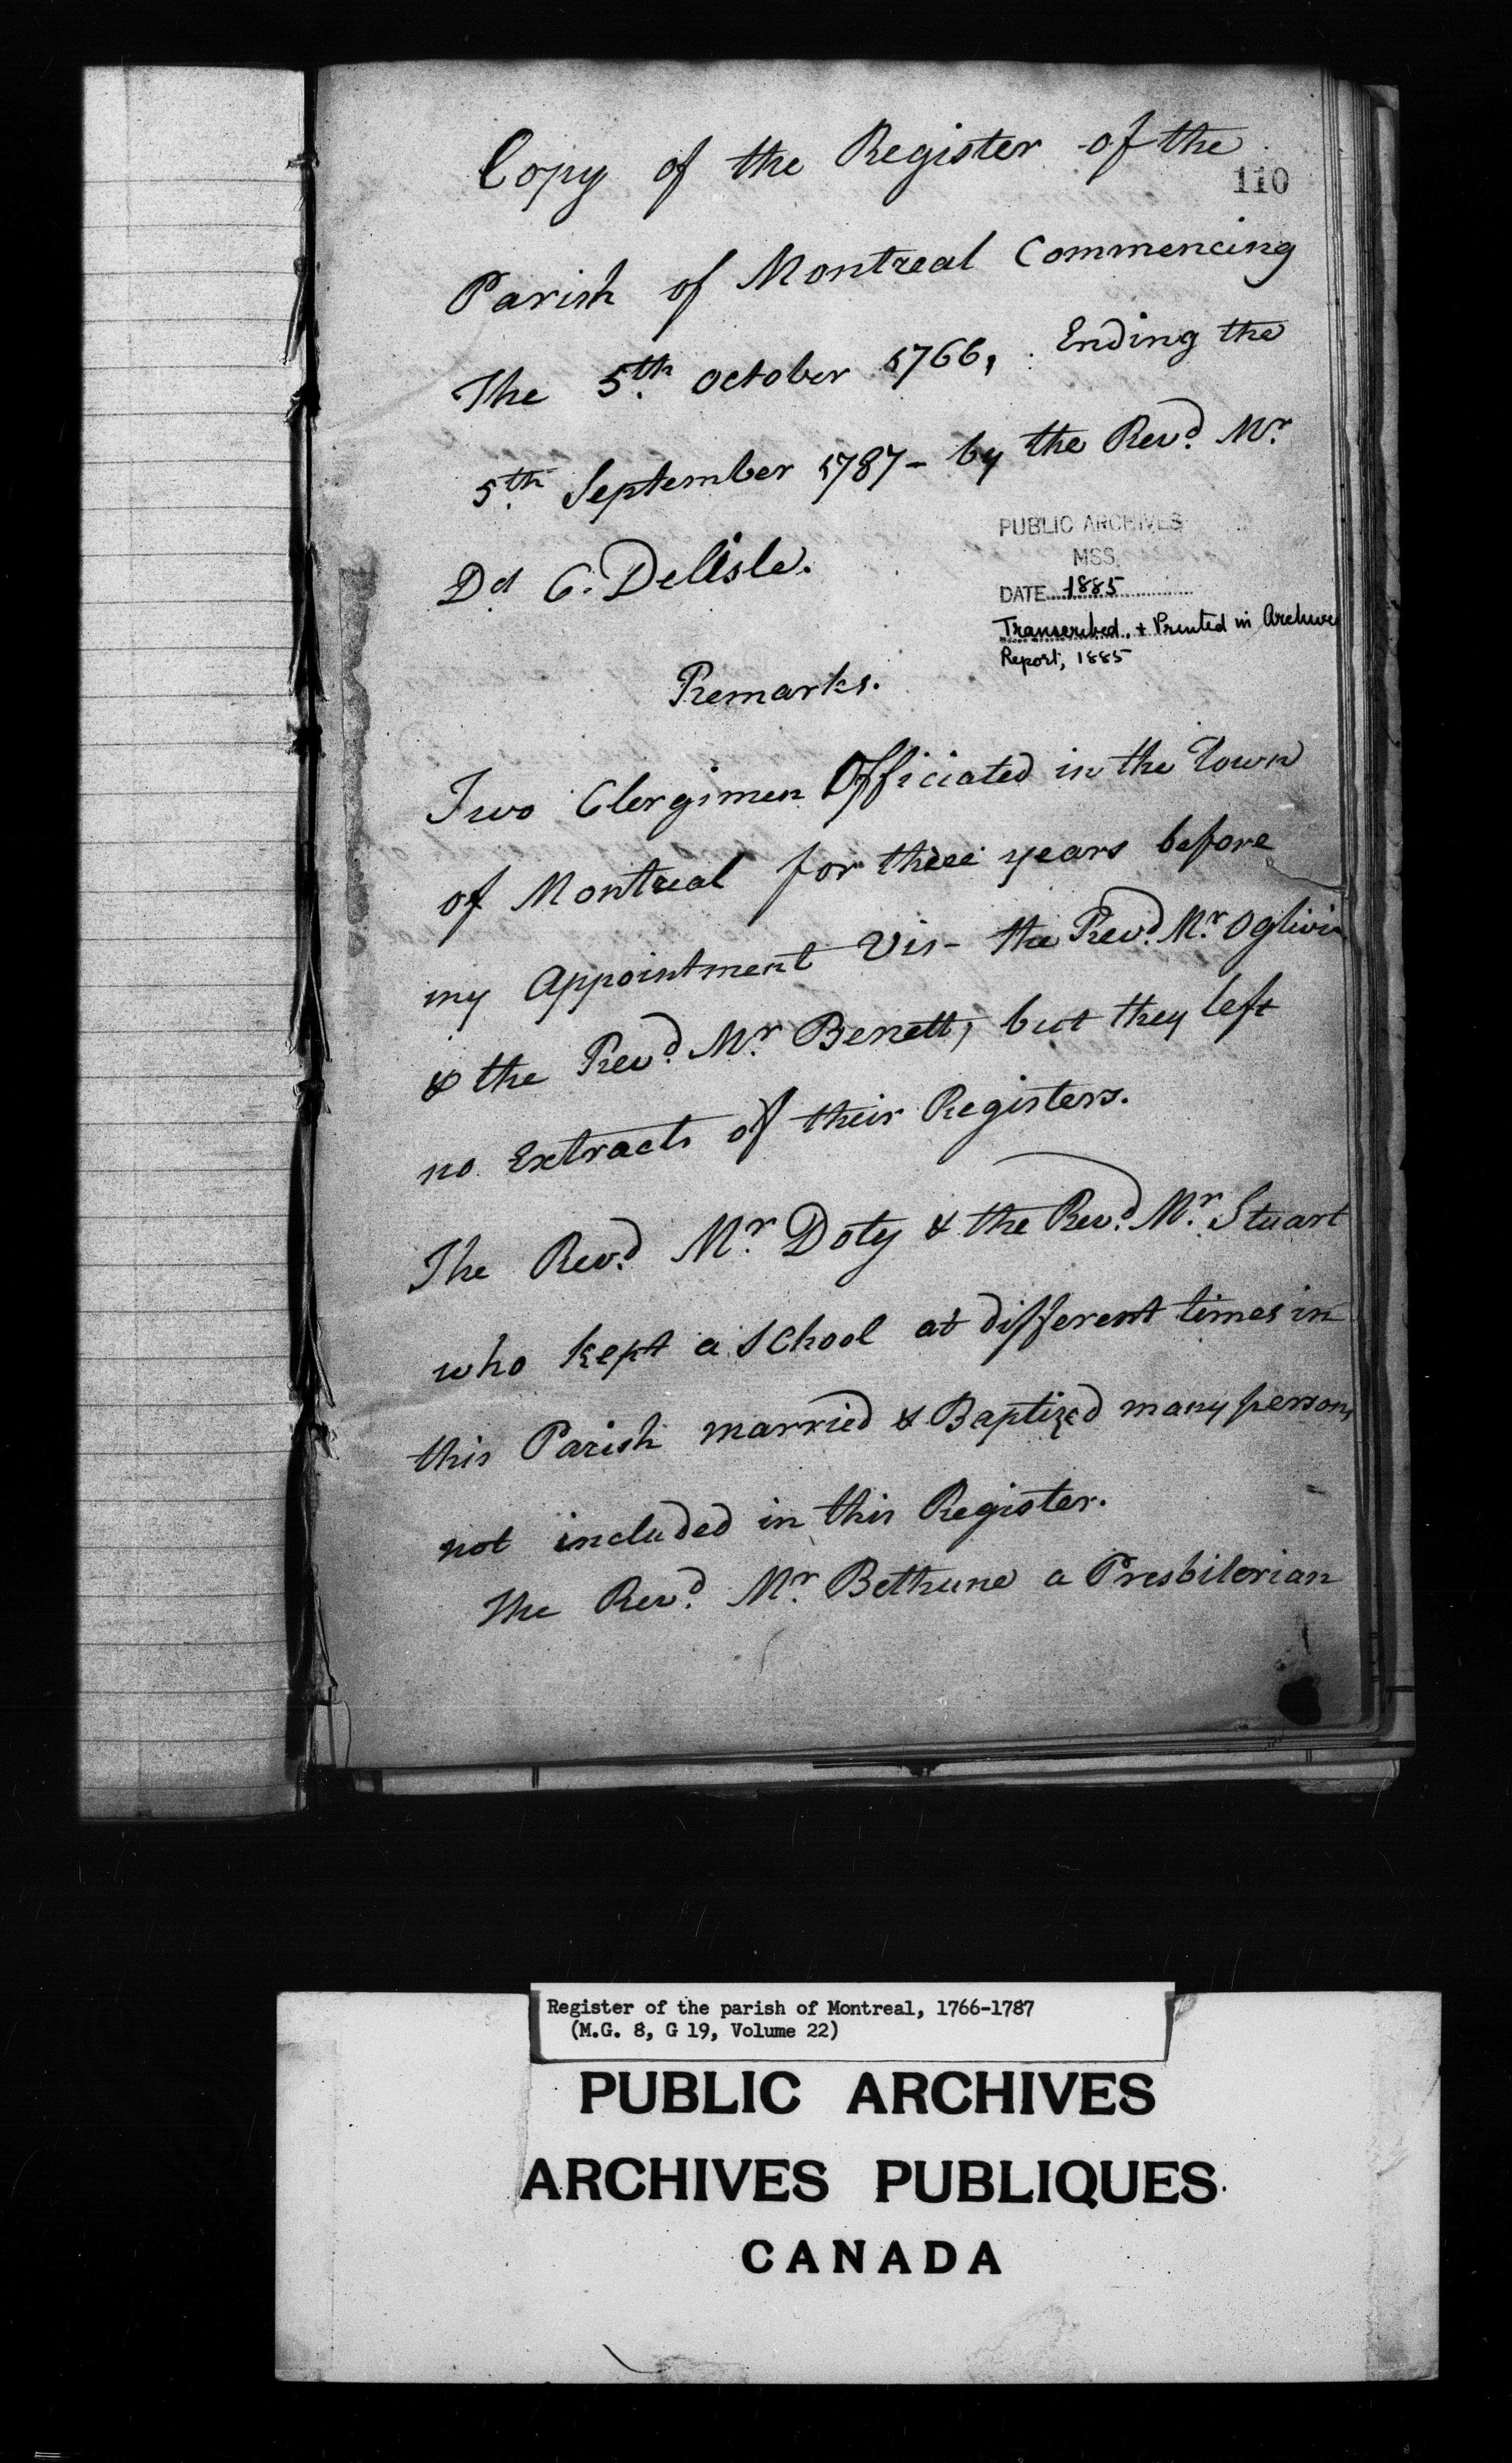 Copy of the Register of the
110
Parish of Montreal Commencing
The 5th October 1766, Ending the
5th September 1787 - by the Revd. Mr.
Dd C. Delisle.
PUBLIC ARCHIVES
MSS.
DATE 1885
Transcribed, & Printed in Archives
Report, 1885
Remarks.
Two Clergimen Officiated in the Town
of Montreal for three years before
my Appointment Vis - the Revd. Mr. Oglivie
& the Revd. Mr. Benett, but they left
no Extracts of their Registers.
The Revd. Mr. Doty & the Revd. Mr. Stuart
who kept a School at different times in
this Parish married & Baptized many persons
not included in this Register.
The Revd. Mr. Bethune a Presbiterian
Register of the parish of Montreal, 1766-1787
(M.G. 8, G 19, Volume 22)
PUBLIC ARCHIVES
ARCHIVES PUBLIQUES
CANADA